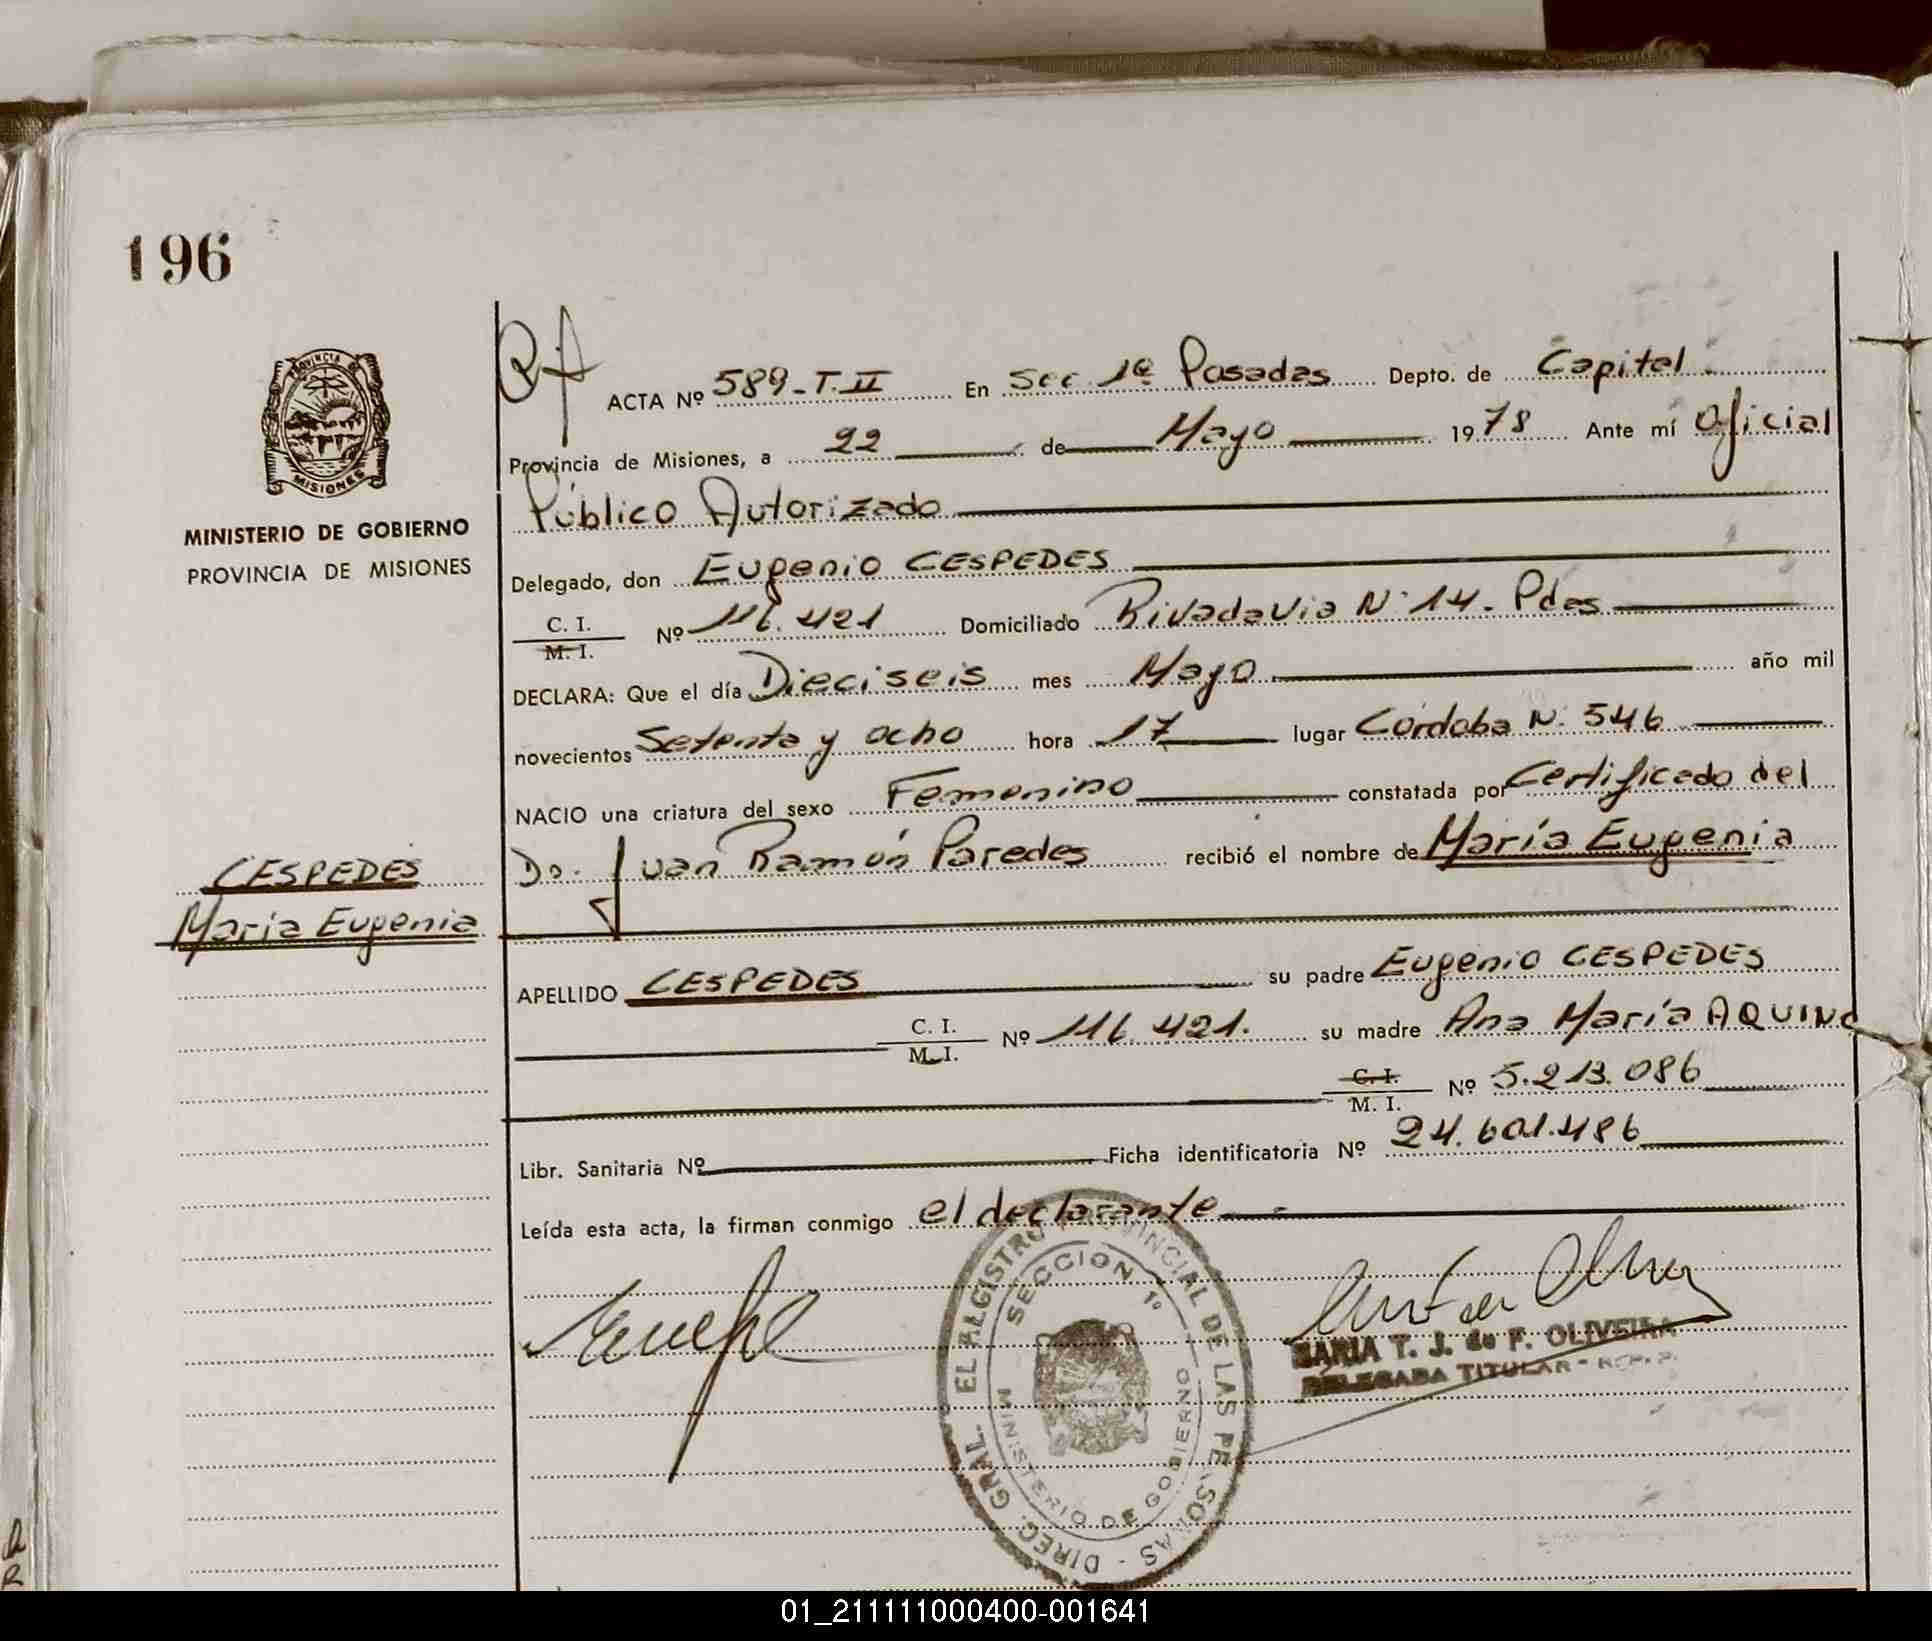 196
PROVINCIA
MISIONES
MINISTERIO DE GOBIERNO
PROVINCIA DE MISIONES
ACTA Nº 589-T.II En Sec. 1ª Posadas Depto. de Capital.
Provincia de Misiones, a 22 de Mayo 1978 Ante mí Oficial
Público Autorizado
Delegado, don Eugenio CESPEDES
C. I.
M. I.
Nº 116.421 Domiciliado Rivadavia Nº 14. Pdas
DECLARA: Que el día Dieciseis mes Mayo año mil
novecientos Setenta y ocho hora 17 lugar Córdoba N. 546
NACIO una criatura del sexo Femenino constatada por Certificado del
Dr. Juan Ramón Paredes recibió el nombre de María Eugenia
CESPEDES
María Eugenia
APELLIDO CESPEDES su padre Eugenio CESPEDES
C. I.
M. I.
Nº 116.421. su madre Ana María AQUINO
C. I.
M. I.
Nº 5.213.086
Libr. Sanitaria Nº Ficha identificatoria Nº 24.601.486
Leída esta acta, la firman conmigo el declarante
DIREC. GRAL. EL REGISTRO PROVINCIAL DE LAS PERSONAS
SECCION 1º
MINISTERIO DE GOBIERNO
MARIA T. J. de F. OLIVEIRA
DELEGADA TITULAR
01_211111000400-001641